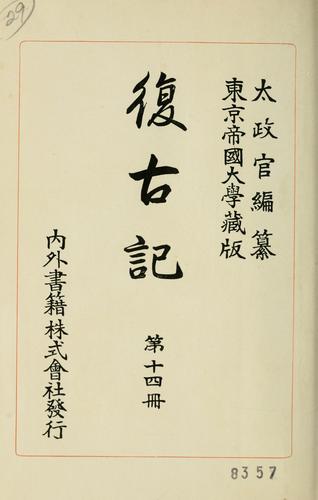 29
太政官編纂
東京帝國大學藏版
復古記
第十四冊
內外書籍株式會社發行
8357